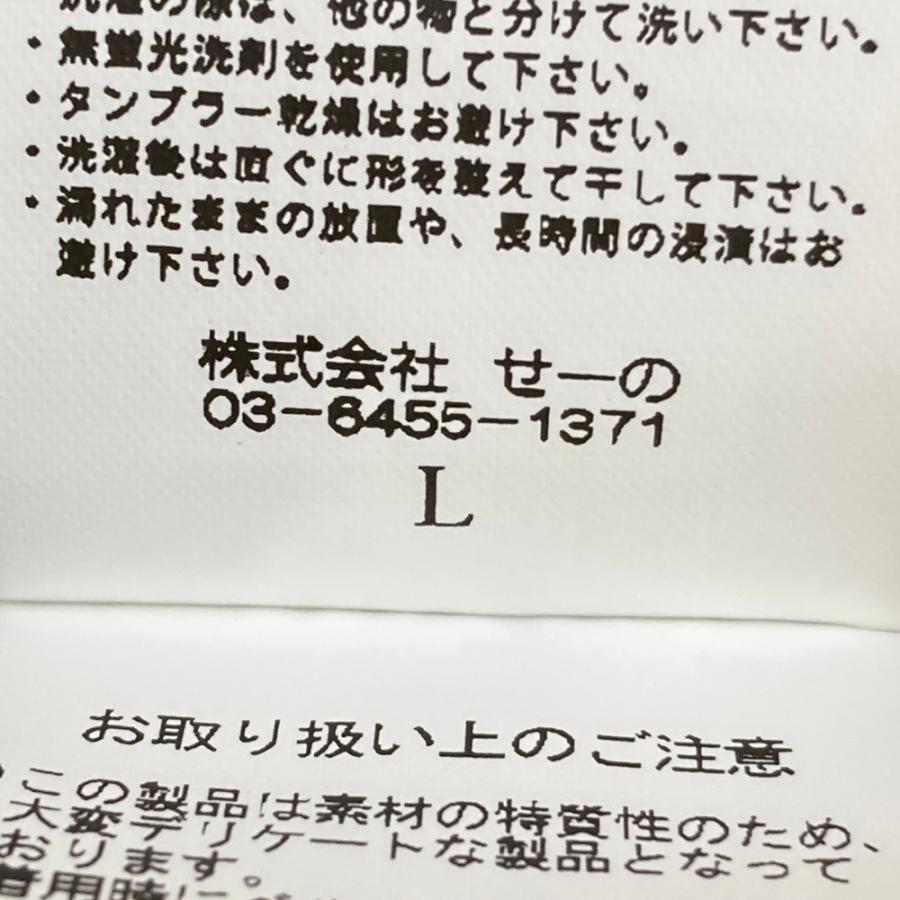 洗濯の際は、他の物と分けて洗い下さい。
・無蛍光洗剤を使用して下さい。
・タンブラー乾燥はお避け下さい。
・洗濯後は直ぐに形を整えて干して下さい。
・濡れたままの放置や、長時間の浸漬はお
避け下さい。
株式会社 せーの
03-6455-1371
L
お取り扱い上のご注意
この製品は素材の特質性のため、
大変デリケートな製品となって
おります。
着用時に